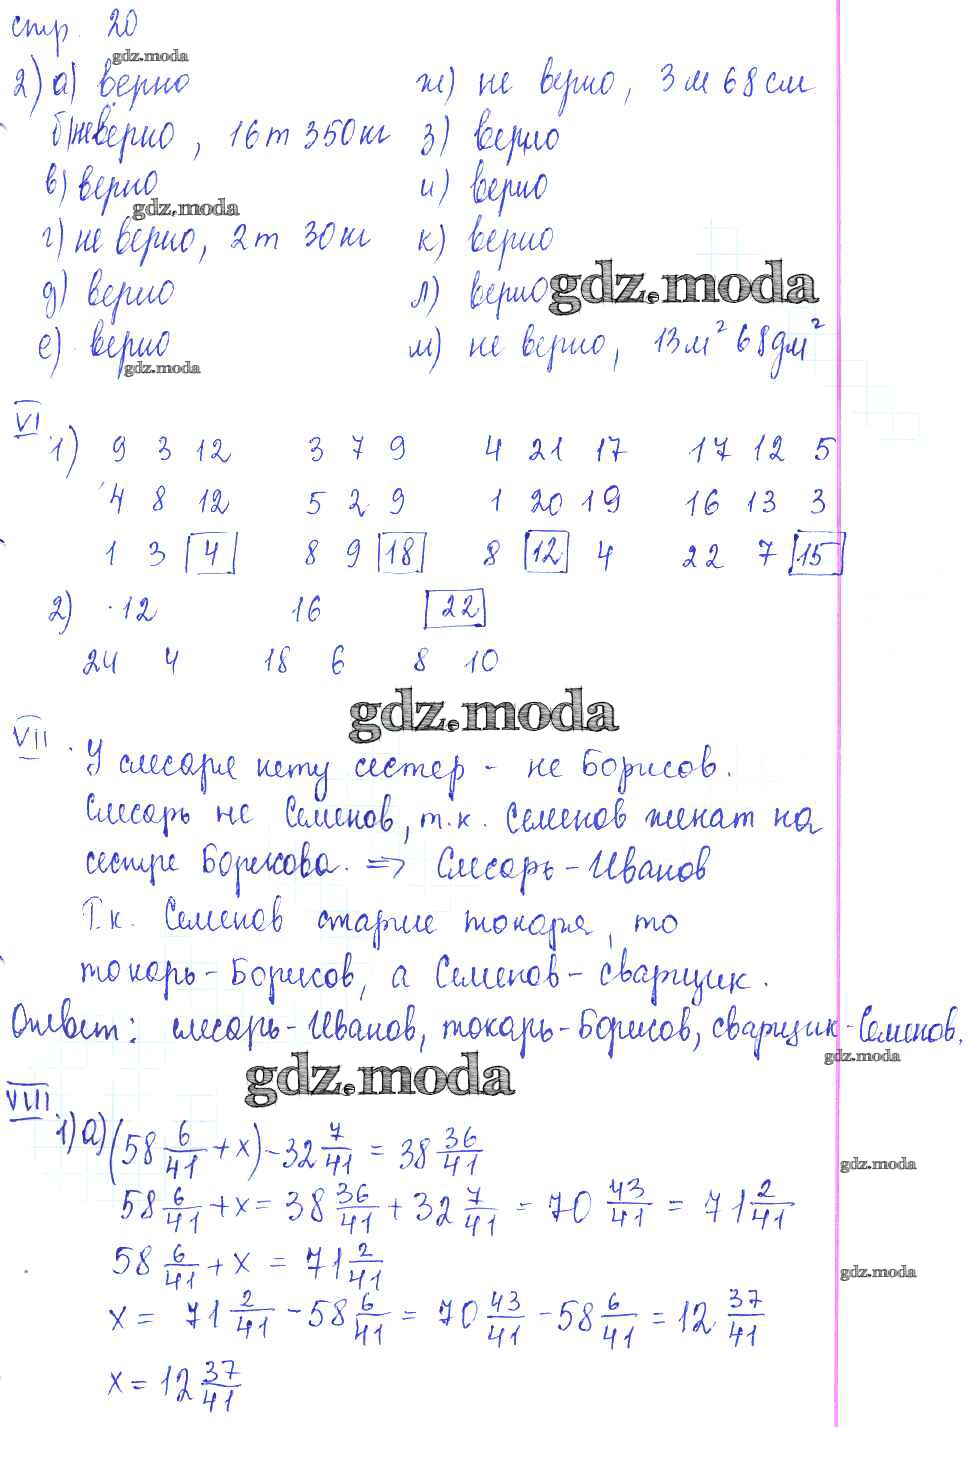 стр. 20
gdz.moda
2) а) верно ж) не верно, 3 м 68 см
б) неверно, 16 т 350 кг з) верно
в) верно и) верно
gdz.moda
г) не верно, 2 т 30 кг к) верно
д) верно л) верно
gdz.moda
е) верно м) не верно, 13 м² 68 дм²
gdz.moda
VI
1) 9 3 12 3 7 9 4 21 17 17 12 5
4 8 12 5 2 9 1 20 19 16 13 3
1 3 4 8 9 18 8 12 4 22 7 15
2) 12 16 22
24 4 18 6 8 10
gdz.moda
VII. У слесаря нету сестер - не Борисов.
Слесарь не Семенов, т.к. Семенов женат на
сестре Борисова. => Слесарь - Иванов
Т.к. Семенов старше токаря, то
токарь - Борисов, а Семенов - сварщик.
Ответ: слесарь - Иванов, токарь - Борисов, сварщик - Семенов.
gdz.moda
gdz.moda
VIII.
1) а) (58 6/41 + x) - 32 7/41 = 38 36/41
gdz.moda
58 6/41 + x = 38 36/41 + 32 7/41 = 70 43/41 = 71 2/41
58 6/41 + x = 71 2/41
gdz.moda
x = 71 2/41 - 58 6/41 = 70 43/41 - 58 6/41 = 12 37/41
x = 12 37/41